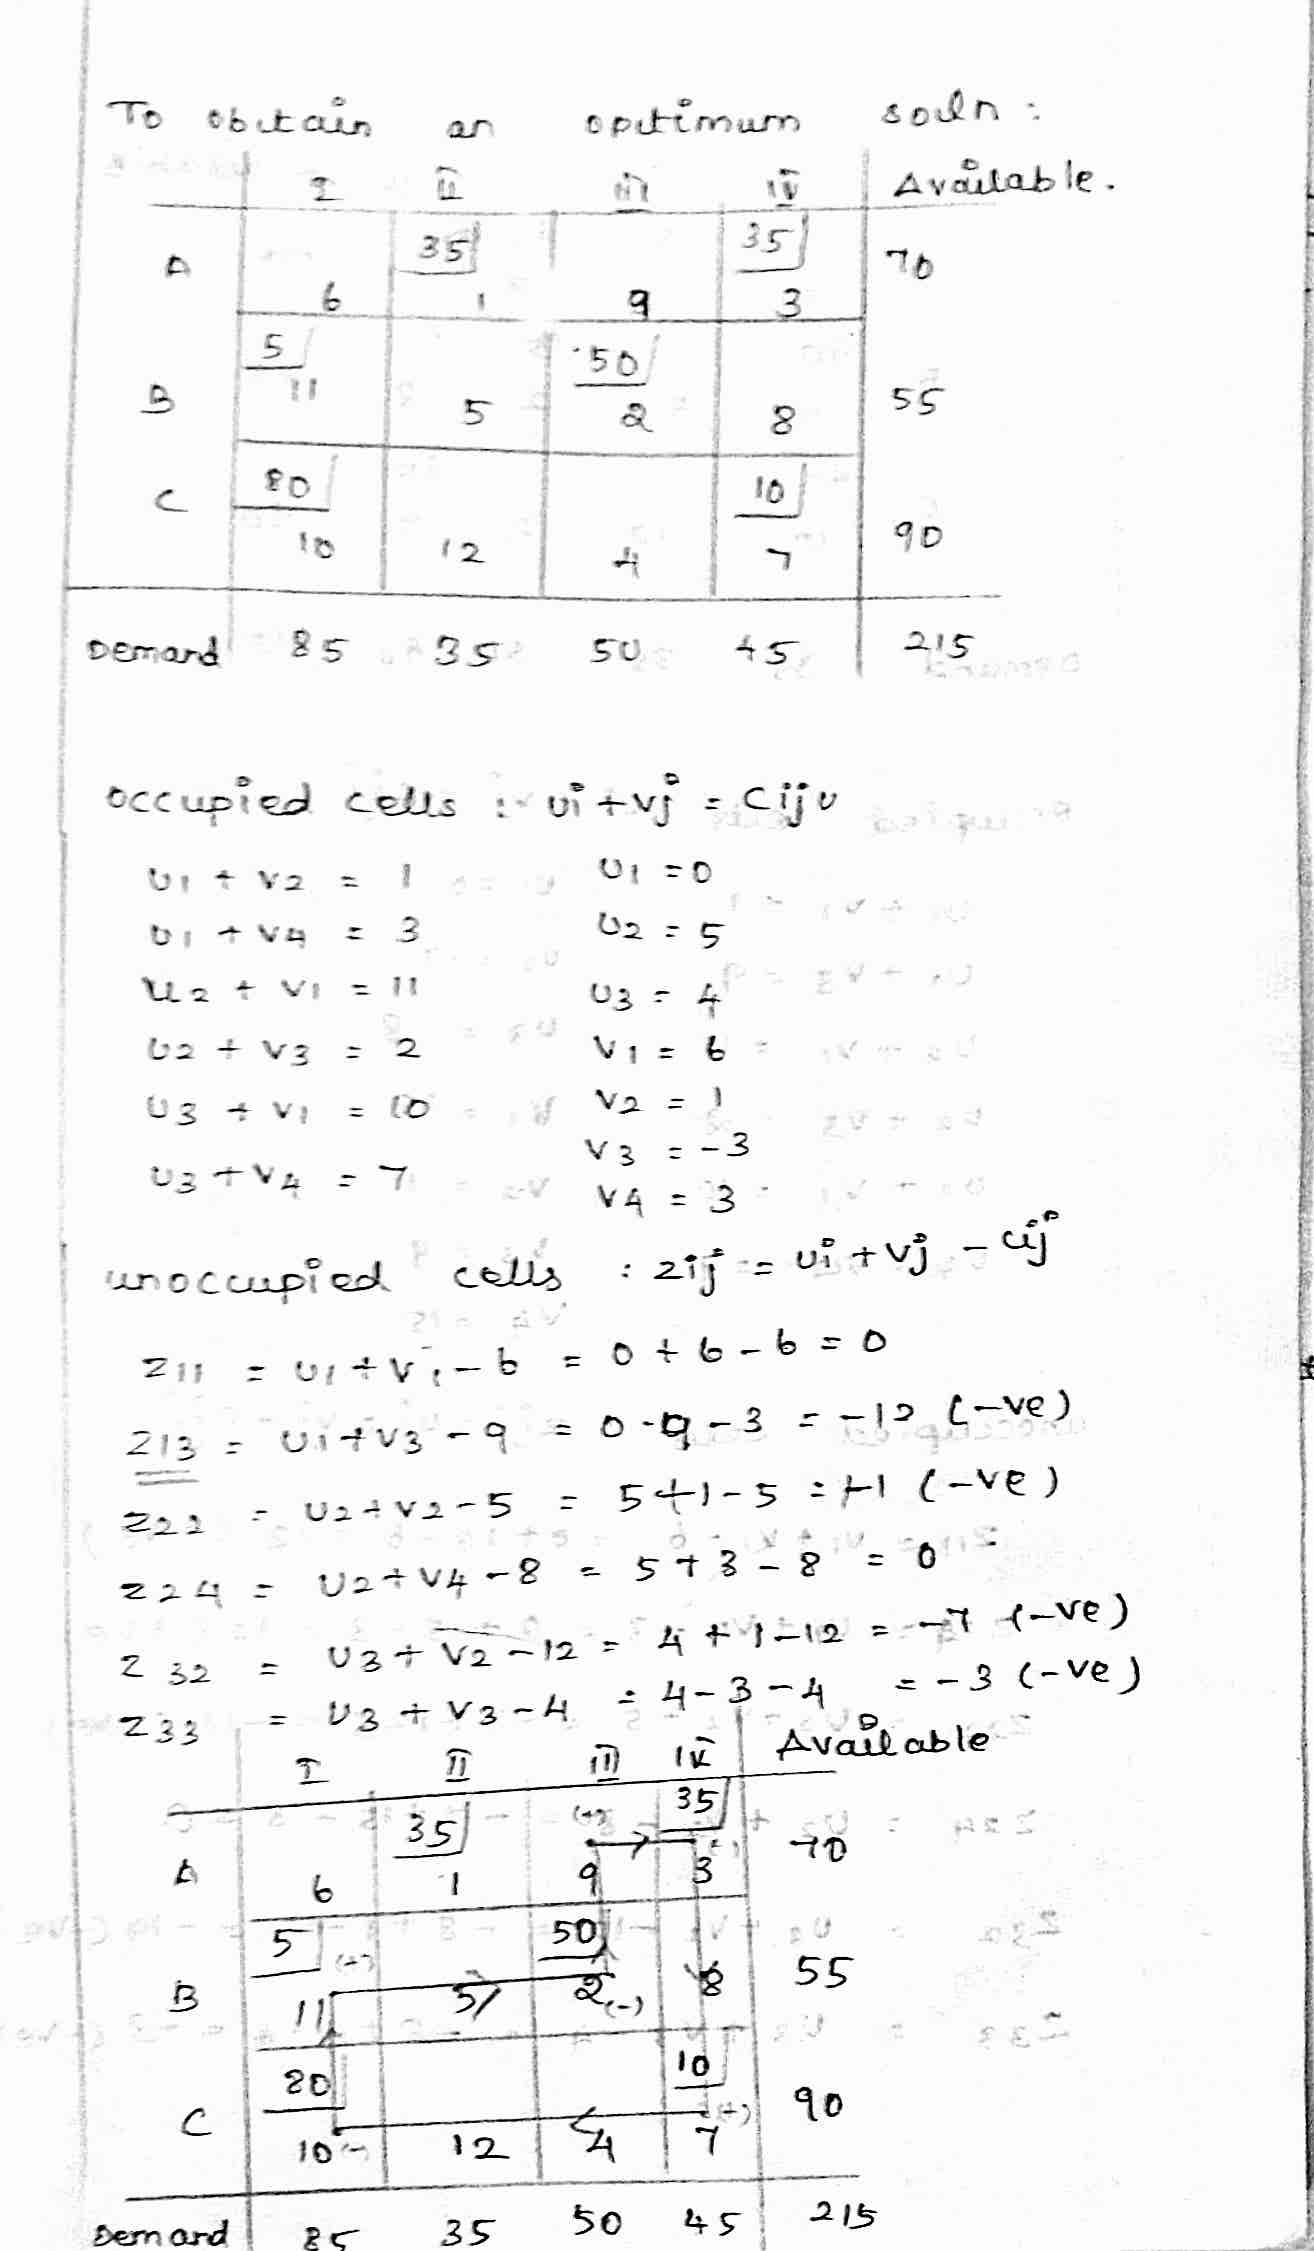 To obtain an optimum soln :
I II III IV Available.
35 35
A 70
6 1 9 3
5 50
11
B 55
5 2 8
80 10
C 90
10 12 4 7
Demand 85 35 50 45 215
occupied cells : ui + vj = cij
u1 + v2 = 1 u1 = 0
u1 + v4 = 3 u2 = 5
u2 + v1 = 11 u3 = 4
u2 + v3 = 2 v1 = 6
u3 + v1 = 10 v2 = 1
v3 = -3
u3 + v4 = 7 v4 = 3
unoccupied cells : zij = ui + vj - cij
z11 = u1 + v1 - 6 = 0 + 6 - 6 = 0
z13 = u1 + v3 - 9 = 0 - 9 - 3 = -12 (-ve)
z22 = u2 + v2 - 5 = 5 + 1 - 5 = +1 (-ve)
z24 = u2 + v4 - 8 = 5 + 3 - 8 = 0
z32 = u3 + v2 - 12 = 4 + 1 - 12 = -7 (-ve)
z33 = u3 + v3 - 4 = 4 - 3 - 4 = -3 (-ve)
I II III IV Available
35 (+) 35
A 70
6 1 9 3
5 (+) 50
B 55
11 5 2 (-) 8
80 10
C (+) 90
10 (-) 12 4 7
Demand 85 35 50 45 215